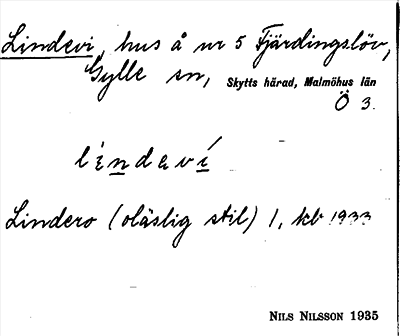 Lindevi, hus å nr 5 Fjärdingslöv,
Gylle sn, Skytts härad, Malmöhus län
Ö 3.
lindeví
Lindero (oläslig stil) 1, kb 1933
NILS NILSSON 1935